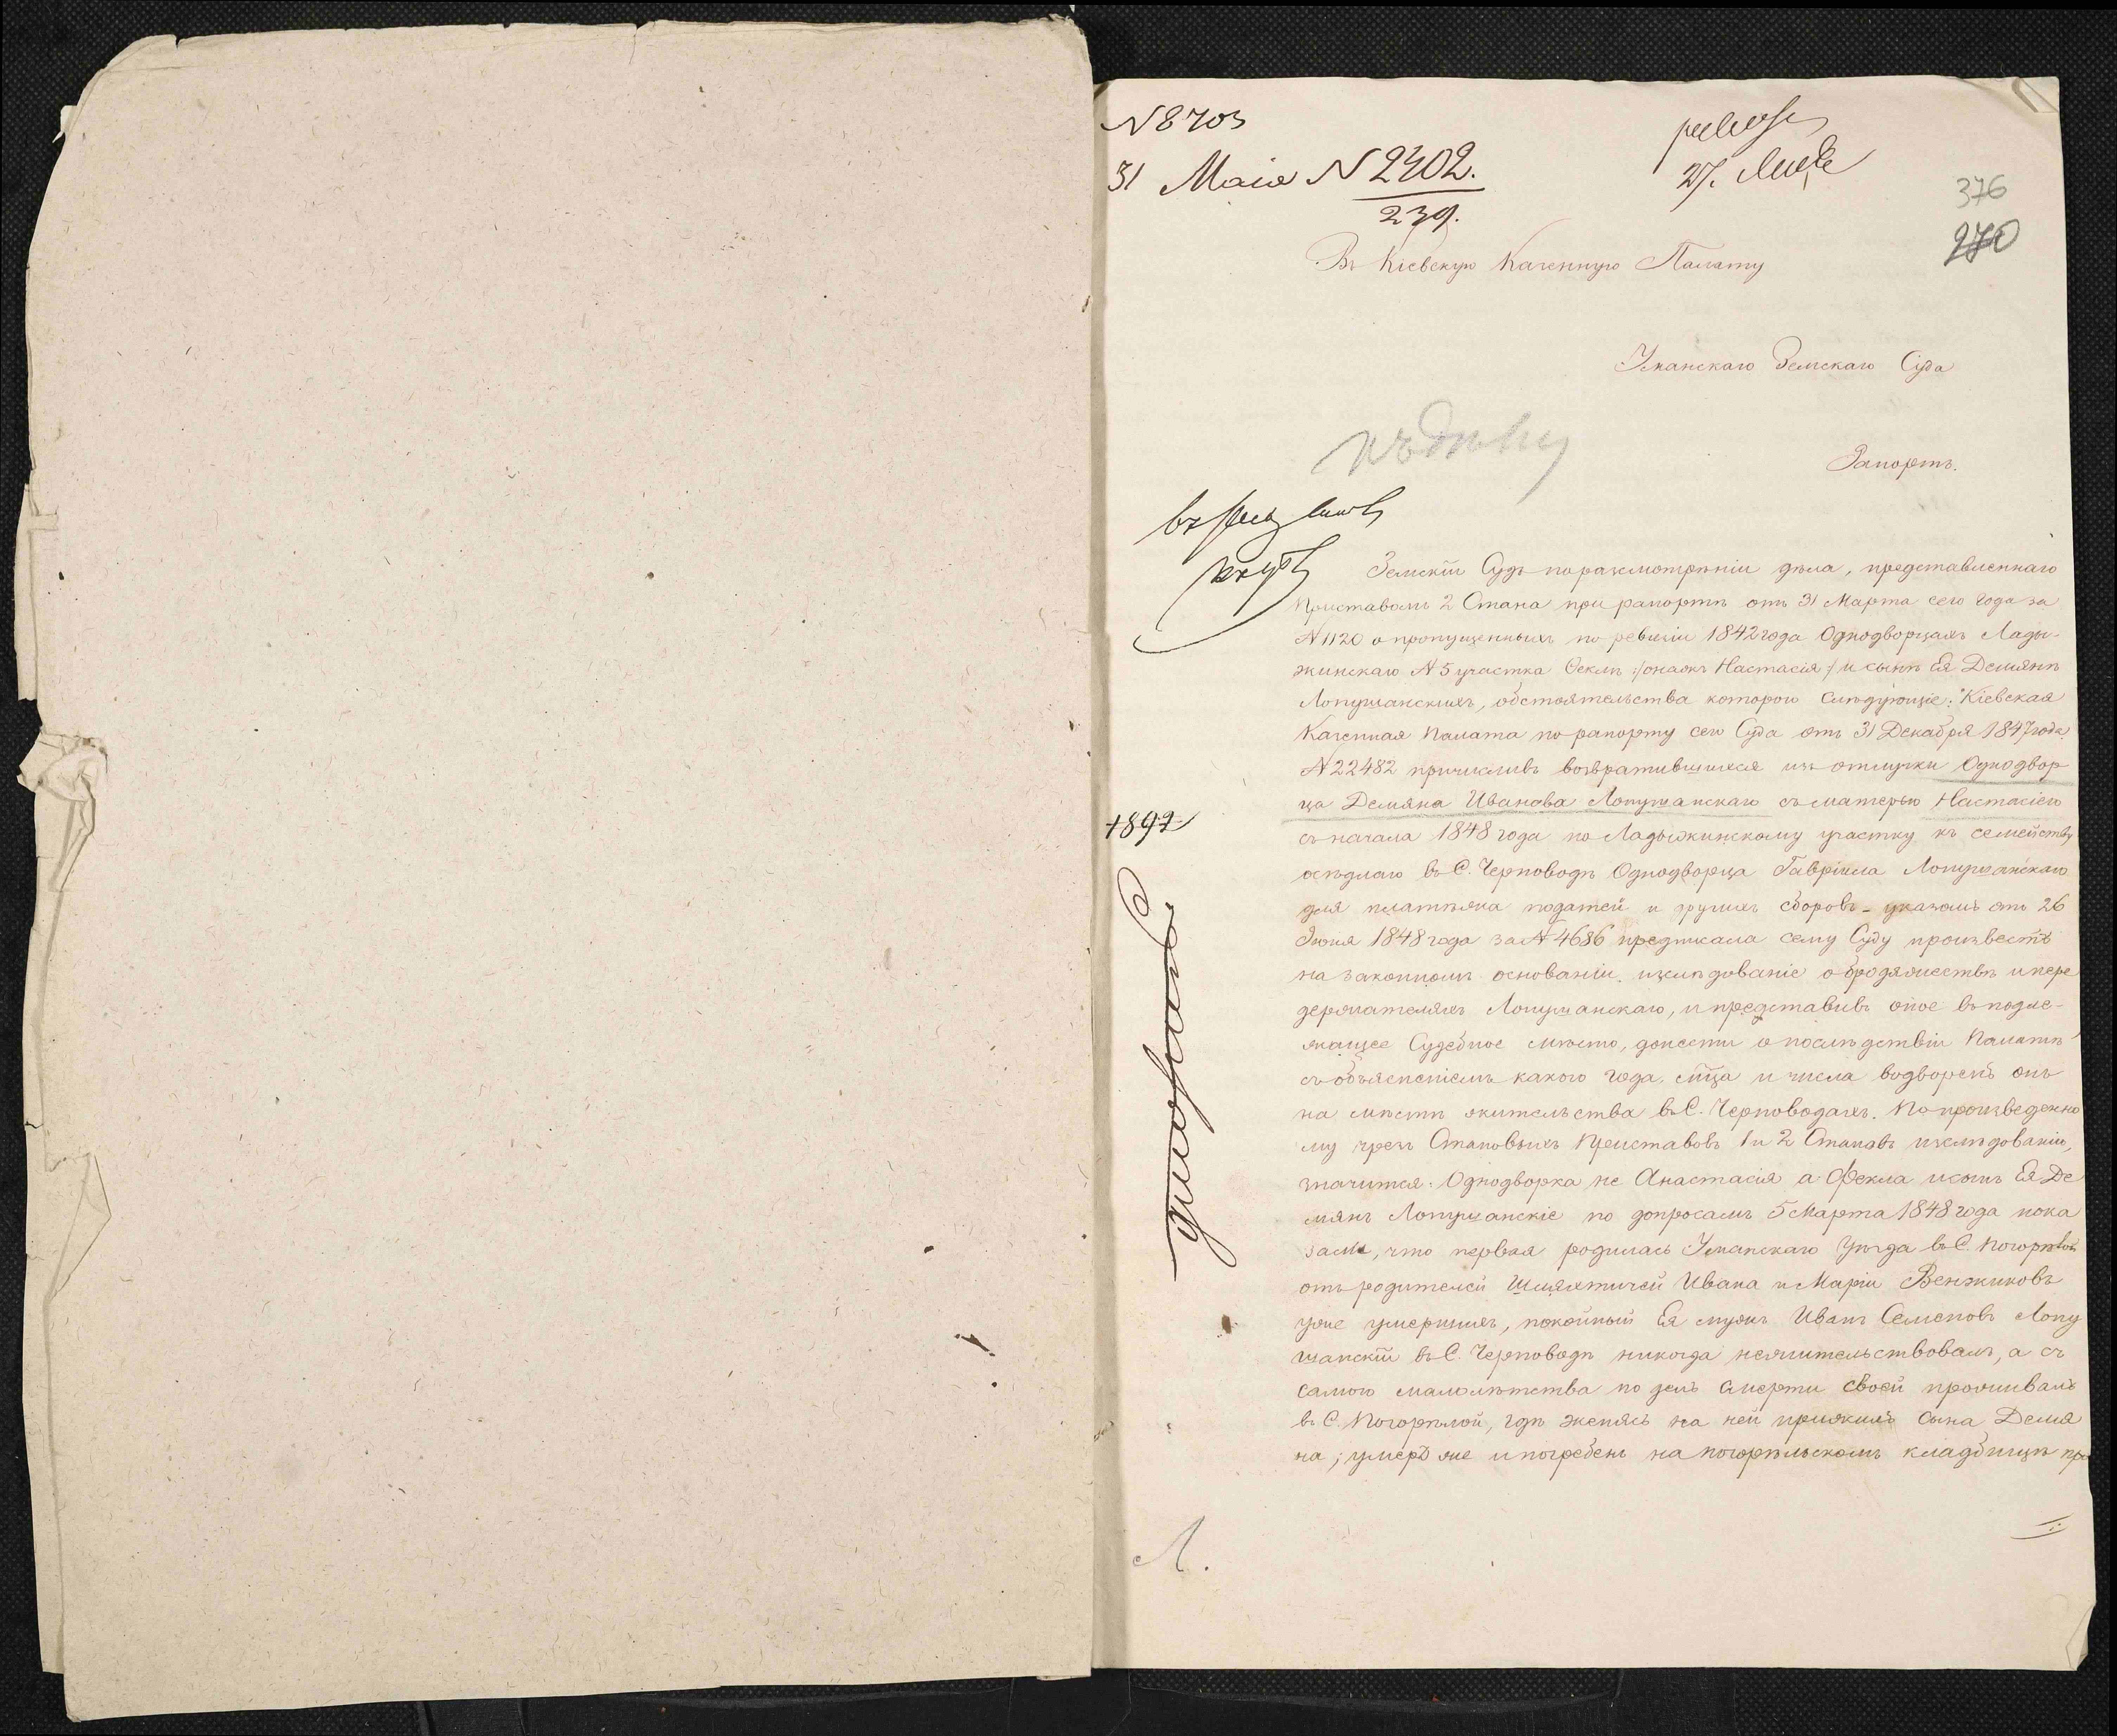 N 8703
31 Маія N 2402.
239.
27.
376
270
Въ Кіевскую Казенную Палату
Уманскаго Земскаго Суда
къ дѣлу
Рапортъ.
Земскій Судъ по разсмотрѣніи дѣла, представленнаго
Приставомъ 2 Стана при рапортѣ отъ 31 Марта сего года за
N 1120 о пропущенныхъ по ревизіи 1842 года Однодворцахъ Лады-
жинскаго N 5 участка Феклѣ :/онажъ Настасія/: и сынѣ Ея Демянѣ
Лопушанскихъ, обстоятельства котораго слѣдующіе: Кіевская
Казенная Палата по рапорту сего Суда отъ 31 Декабря 1847 года
N 22482 причисливъ возвратившихся изъ отлучки Однодвор
ца Демяна Иванова Лопушанскаго съ матерью Настасіею
съ начала 1848 года по Ладыжинскому участку къ семейству
осѣдлаго въ С. Черноводѣ Однодворца Гавріила Лопушанскаго
для платежа податей и другихъ сборовъ - указомъ отъ 26
Іюня 1848 года за N 4686 предписала сему Суду произвесть
на законномъ основаніи изслѣдованіе о бродяжествѣ и пере
держателяхъ Лопушанскаго, и представивъ оное въ подле-
жащее Судебное мѣсто, донести о послѣдствіи Палатѣ
съ объясненіемъ какого года, мца и числа водворенъ онъ
на мѣстѣ жительства въ С. Черноводахъ. По произведенно
му чрезъ Становыхъ Приставовъ 1 и 2 Становъ изслѣдованію,
значится: Однодворка не Анастасія а Фекла и сынъ Ея Де
мянъ Лопушанскіе по допросамъ 5 Марта 1848 года пока
зали, что первая родилась Уманскаго Уѣзда въ С. Погорѣлой
отъ родителей Шляхтичей Ивана и Маріи Венжиковъ
уже умершихъ, покойный Ея мужъ Иванъ Семеновъ Лопу
шанскій въ С. Черноводѣ никогда нежительствовалъ, а съ
самого малолѣтства по день смерти своей проживалъ
въ С. Погорѣлой, гдѣ женясь на ней прижилъ сына Демя
на; умеръ же и погребенъ на погорѣльскомъ кладбищѣ пр
1897
Л.